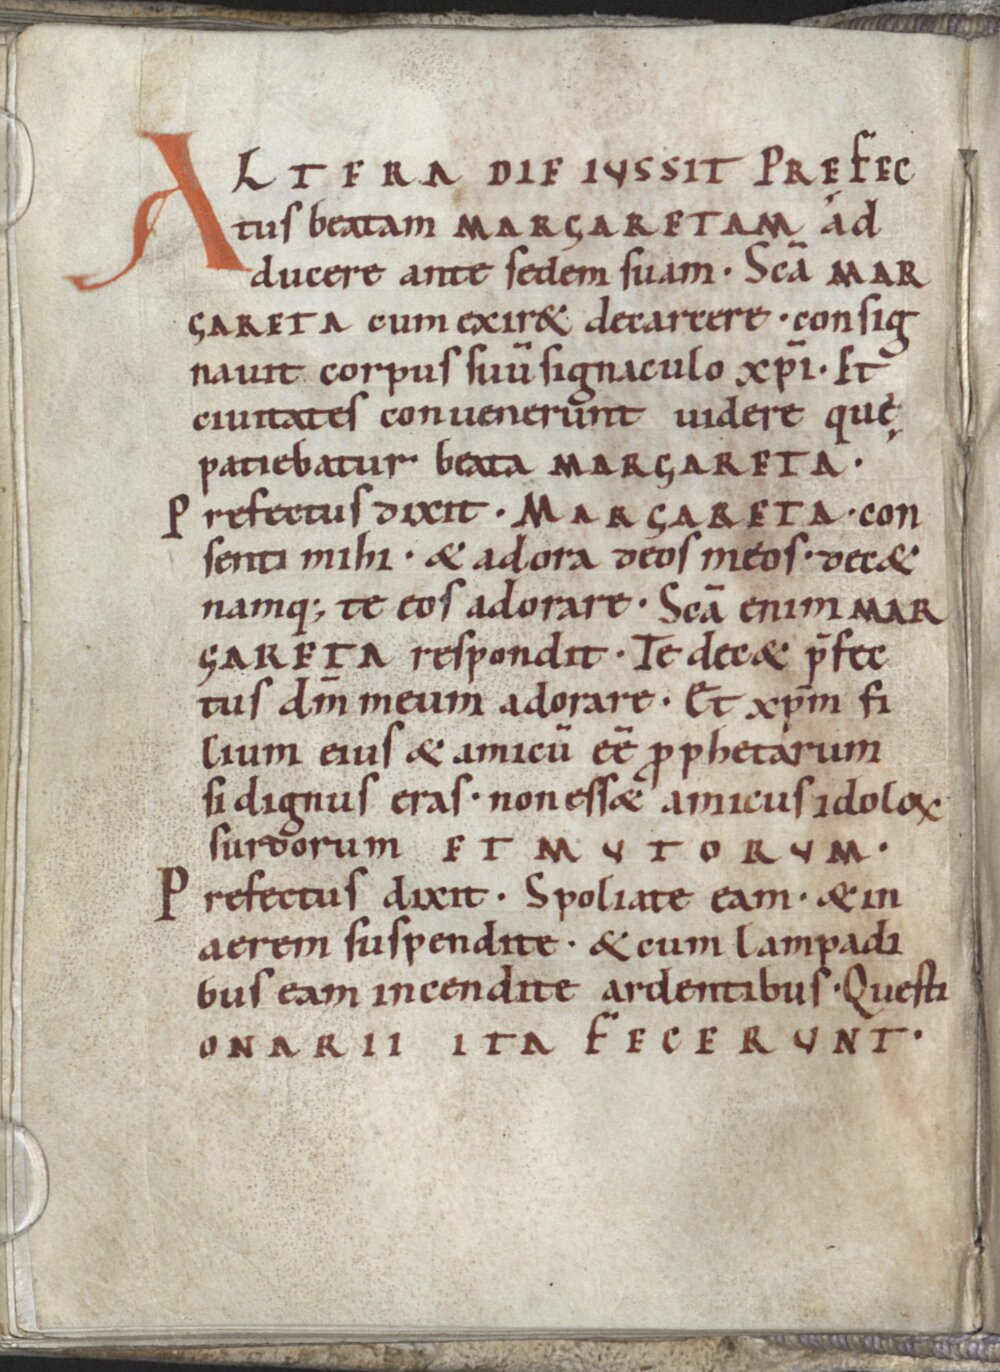 ALTERA DIE IUSSIT PREFEC
tus beatam MARGARETAM ad
ducere ante sedem suam · Scā MAR
GARETA cum exir& decarcere · consig
nauit corpus suū signaculo xp̄i · Et
ciuitates conuenerunt uidere quę
patiebatur beata MARGARETA ·
Prefectus dixit · MARGARETA · con
senti mihi · & adora deos meos · dec&
namq; te eos adorare · Scā enim MAR
GARETA respondit · Te dec& p̄fec
tus dm̄ meum adorare · Et xp̄m fi
lium eius & amicū eē ꝓphetarum
si dignus eras · non ess& amicus idoloꝝ
surdorum ET MUTORUM ·
Prefectus dixit · Spoliate eam · & in
aerem suspendite · & cum lampadi
bus eam incendite ardentibus · Questi
ONARII ITA FECERUNT ·